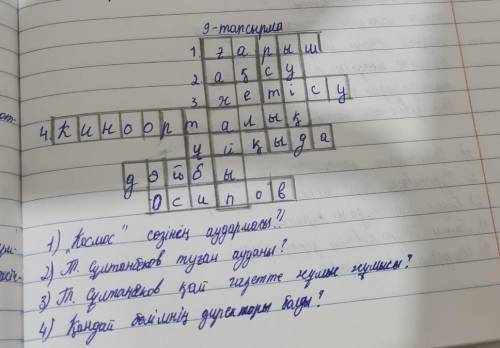 9-тапсырма
1. ғарыш
2. ақсу
3. жетісу
4. киноорталық
ұйқыда
дойбы
Осипов
1) "Космос" сөзінің аудармасы?
2) Т. Сұлтанбеков туған ауданы?
3) Т. Сұлтанбеков қай газетте жұмыс жұмысы?
4) Қандай бөлімнің директоры болды?